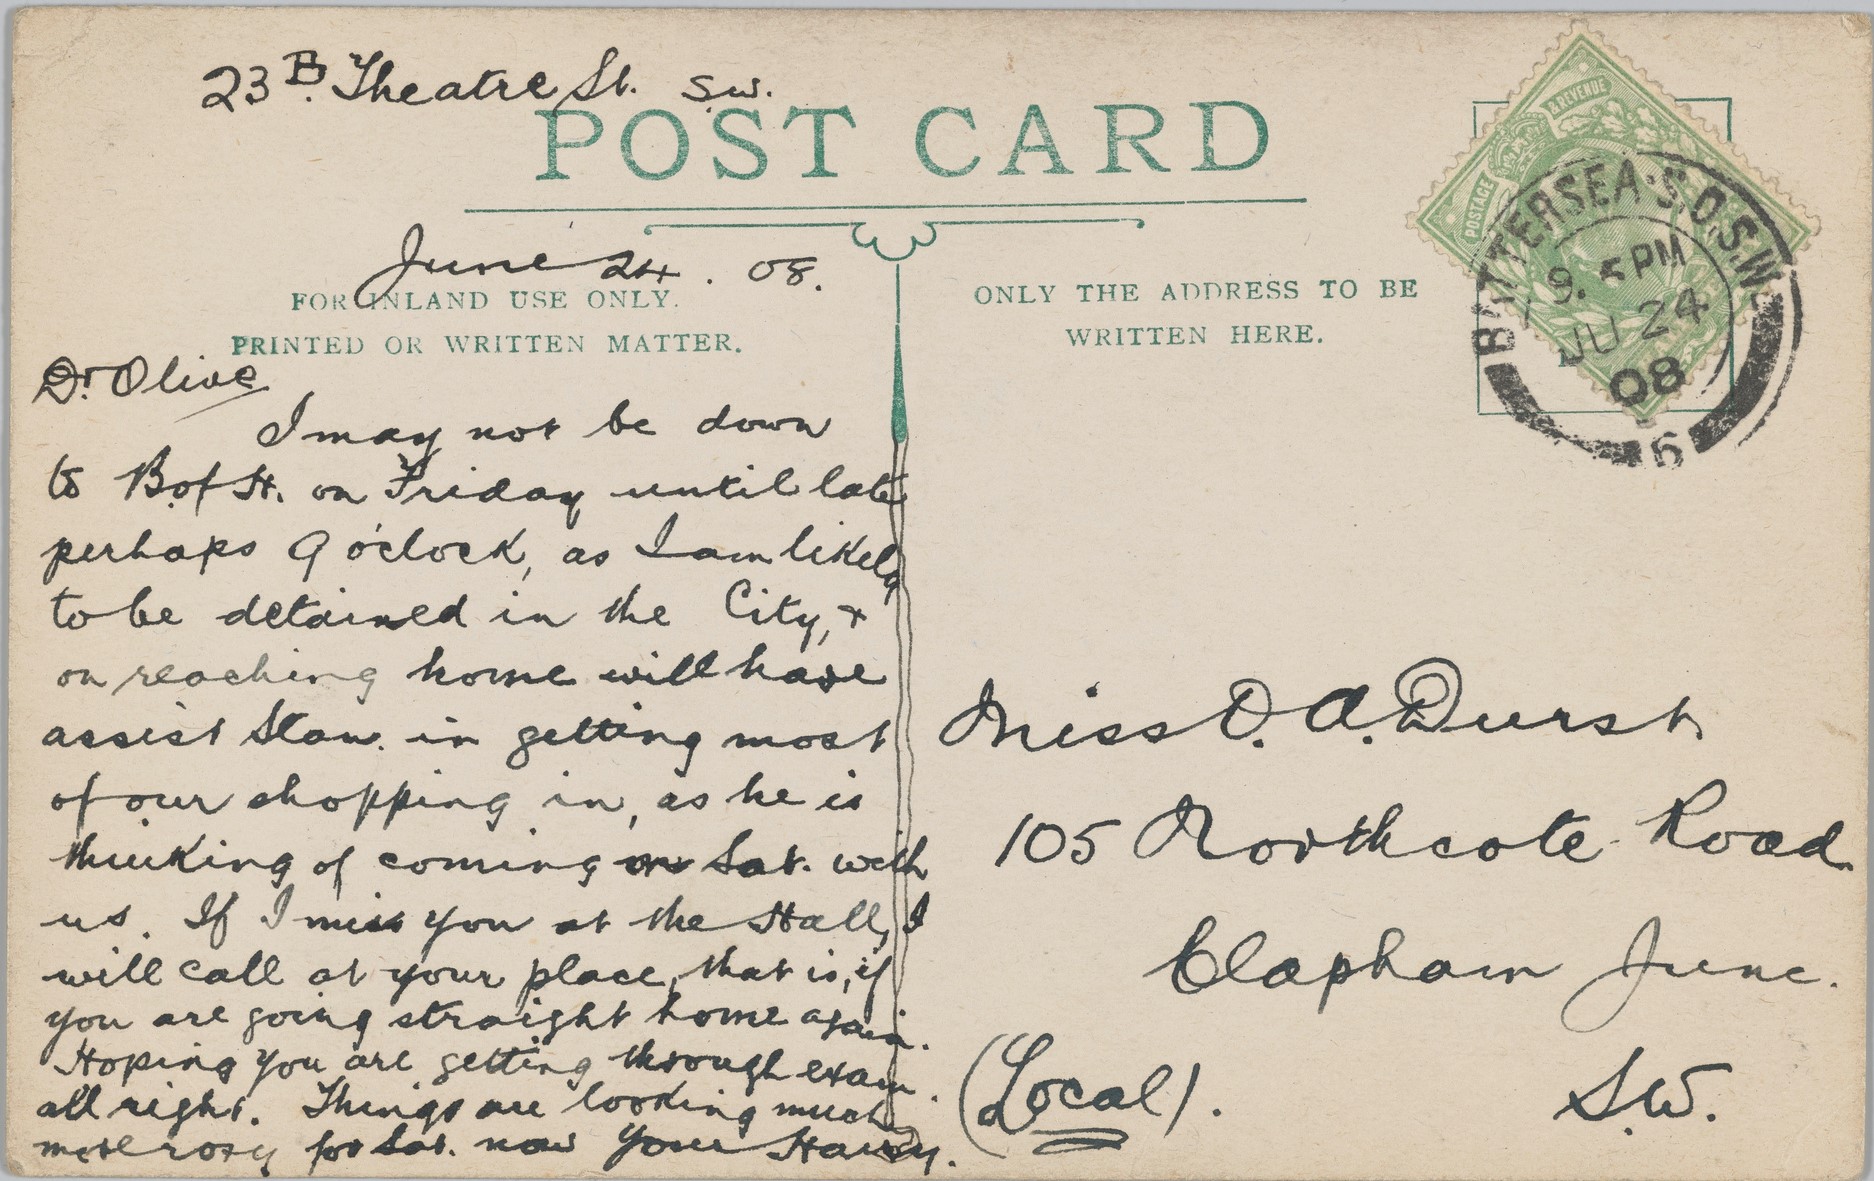 23B. Theatre St. S.W.
POST CARD
June 24. 08.
FOR INLAND USE ONLY.
PRINTED OR WRITTEN MATTER.
Dr Olive
I may not be down
to B.of H. on Friday until late
perhaps 9 o'clock, as I am likely
to be detained in the City, +
on reaching home will have
assist Stan. in getting most
of our shopping in, as he is
thinking of coming on Sat. with
us. If I miss you at the Hall, I
will call at your place, that is, if
you are going straight home again.
Hoping you are getting through exam.
all right. Things are looking much
more rosy for Sat. now Your Harry.
ONLY THE ADDRESS TO BE
WRITTEN HERE.
POSTAGE & REVENUE
BATTERSEA S.O.S.W
9. 5 PM
JU 24
08
6
Miss O. A. Durst
105 Northcote Road
Clapham Junc.
(Local).
S.W.